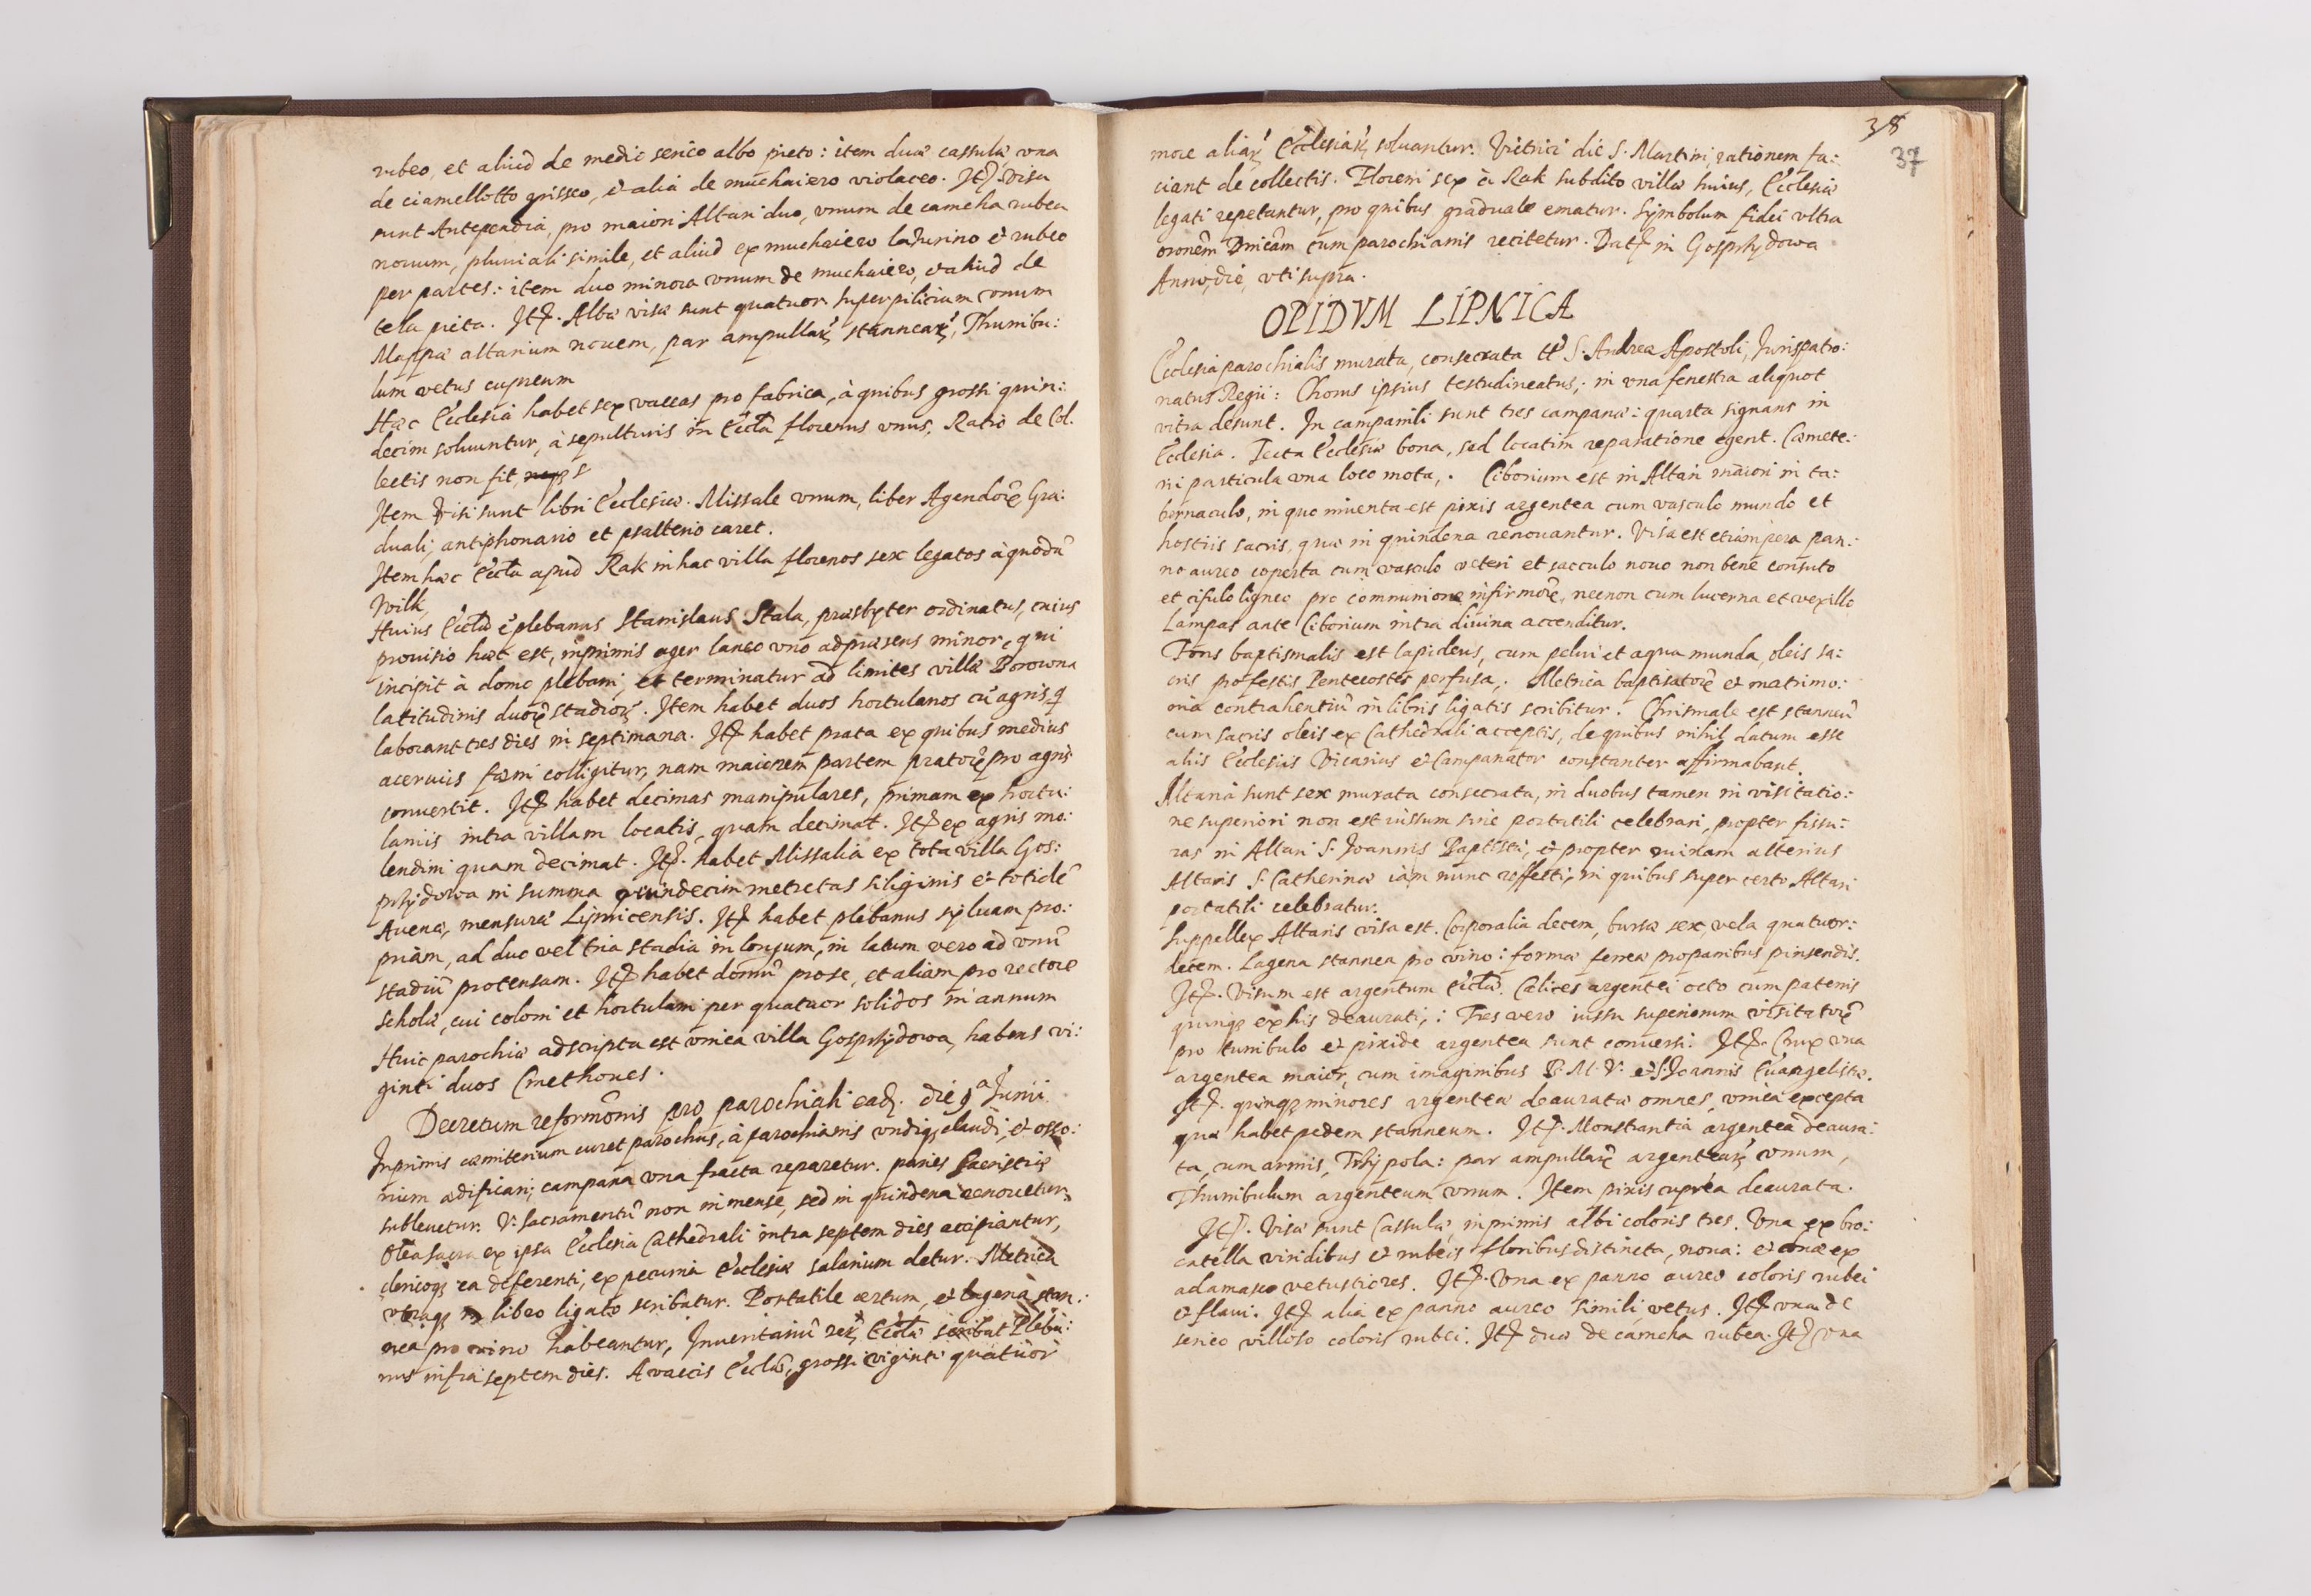 rubeo, et aliud de medio serico albo picto: item duæ cassulæ, una
de ciamellotto grisseo, et alia de muchaiero violaceo. Itẽ. Visa
sunt Antependia, pro maiori Altari duo, vnum de cameha rubea
nouum, pluuiali simile, et aliud ex muchaiero lazurino et rubeo
per partes: item duo minora vnum de muchaiero, et aliud de
tela picta. Itẽ. Albæ visæ sunt quatuor superpilicium vnum
Mappæ altarium nouem, par ampullarꝝ stannearꝝ, Thuribu:
lum vetus cupreum
Hæc Ecclesia habet sex vaccas pro fabrica, à quibus grossi quin:
decim soluuntur, à sepulturis in Eccła florenus vnus, Ratio de Col.
lectis non fit,
Item Visi sunt libri Ecclesiæ. Missale vnum, liber Agendorꝝ Gra:
duali, antiphonario et psalterio caret.
Item hæc Eccła apud Rak in hac villa florenos sex legatos à quodã
Wilk,
Huius Eccłæ ẽ plebanus Stanislaus Skala, præsbyter ordinatus, cuius
prouisio hæc est, inprimis ager laneo vno ad præsens minor, qui
incipit à domo plebani, et terminatur ad limites villæ Borowna
latitudinis duorꝝ stadiorꝝ. Item habet duos hortulanos cũ agris, q̃
laborant tres dies in septimana. Itẽ habet prata ex quibus medius
aceruus fæni colligitur, nam maiorem partem pratorꝝ pro agris
conuertit. Itẽ habet decimas manipulares, primam ex hortu:
laniis intra villam locatis, quam decimat. Itẽ ex agris mo:
lendini quam decimat. Itẽ. habet Missalia ex tota villa Gos:
przydowa in summa quindecim metretas siliginis et totidẽ
Auenæ, mensuræ Lipnicensis. Itẽ habet plebanus syluam pro:
priam, ad duo vel tria stadia in longum, in latum vero ad vnũ
stadiũ protensam. Itẽ habet domũ pro se, et aliam pro rectore
scholæ, cui coloni et hortulani per quatuor solidos in annum
Huic parochiæ adscripta est vnica villa Gosprzydowa, habens vi:
ginti duos Cmethones.
Decretum reformõnis pro parochiali eadẽ. die 9ª Junii
Inprimis cæmiterium curet parochus, à parochianis vndiqꝫ claudi, et osso:
rium ædificari; campana vna fracta reparetur. paries Sacristiæ
subleuetur. V: Sacramentũ non in mense, sed in quindena renouetur,
Olea sacra ex ipsa Ecclesia Cathedrali intra septem dies accipiantur,
clericoqꝫ ea deferenti, ex pecunia Ecclesiæ salarium detur. Metrica
vtraqꝫ in libro ligato scribatur. Portatile certum, et lagena stan:
nea pro vino habeantur, Inuentariũ rerꝝ Eccłæ scribat Pleba:
nus infra septem dies. A vaccis Eccłæ, grossi viginti quatuor
38
37
more aliarꝝ Ecclesiarꝝ soluantur. Vitrici die S. Martini, rationem fa:
ciant de collectis. Floreni sex à Rak subdito villæ huius, Ecclesiæ
legati repetantur, pro quibus graduale ematur. Symbolum fidei vltra
orõnem Dnicãm cum parochianis recitetur. Datẽ in Gosprzydowa
Anno, die, vti supra.
OPIDVM LIPNICA
Ecclesia parochialis murata, consecrata tt̃ S. Andreæ Apostoli, Jurispatro:
natus Regii: Chorus ipsius testudineatus; in vna fenestra aliquot
vitra desunt. In campanili sunt tres campanæ: quarta signans in
Ecclesia. Tecta Ecclesiæ bona, sed locatim reparatione egent. Cæmete:
rii particula vna loco mota. Ciborium est in Altari maiori in ta:
bernaculo, in quo inuenta est pixis argentea cum vasculo mundo et
hostiis sacris, quæ in quindena renouantur. Visa est etiam pera pan:
no aureo coperta cum vasculo veteri et sacculo nouo non bene consuto
et cifulo ligneo pro communione infirmorꝝ, necnon cum lucerna et vexillo
Lampas ante Ciborium intra diuina accenditur.
Fons baptismalis est lapideus, cum pelui et aqua munda, oleis sa:
cris pro festis Pentecostes perfusa. Metrica baptisatorꝝ et matrimo:
nia contrahentiũ in libris ligatis scribitur. Chrismale est stanneũ
cum sacris oleis ex Cathedrali acceptis, de quibus nihil datum esse
aliis Ecclesiis Vicarius et Campanator constanter affirmabant.
Altaria sunt sex murata consecrata, in duobus tamen in visitatio:
ne superiori non est iussum sine portatili celebrari, propter fissu:
ras in Altari S. Joannis Baptistæ, et propter ruinam alterius
Altaris S. Catherinæ iam nunc reffecti, in quibus super certo Altari
portatili celebratur.
Suppellex Altaris visa est. Corporalia decem, bursæ sex, vela quatuor:
decem. Lagena stannea pro vino: forma ferrea pro panibus pinsendis.
Itẽ. Visum est argentum Eccłæ. Calices argentei octo cum patenis
quinqꝫ ex his deaurati,: Tres vero iussu superiorum visitatorꝝ
pro turibulo et pixide argentea sunt conuersi: Itẽ. Crux vna
argentea maior, cum imaginibus B. M. V. et S. Joannis Euangelistæ.
Itẽ. quinqꝫ minores argenteæ deauratæ omnes, vnica excepta
quæ habet pedem stanneum. Itẽ. Monstrantia argentea deaura:
ta, cum armis, Trzy pola: par ampullarꝝ argentearꝝ vnum,
Thuribulum argenteum vnum. Item pixis cuprea deaurata.
Itẽ. Visæ sunt Cassulæ, inprimis albi coloris tres. Vna ex bro:
catella viridibus et rubeis floribus distincta, noua: et ex
adamasco vetustiores. Itẽ. Vna ex panno aureo coloris rubei
et flaui. Itẽ alia ex panno aureo simili, vetus. Itẽ vna de
serico villoso coloris rubei. Itẽ duæ de camcha rubea. Itẽ vna